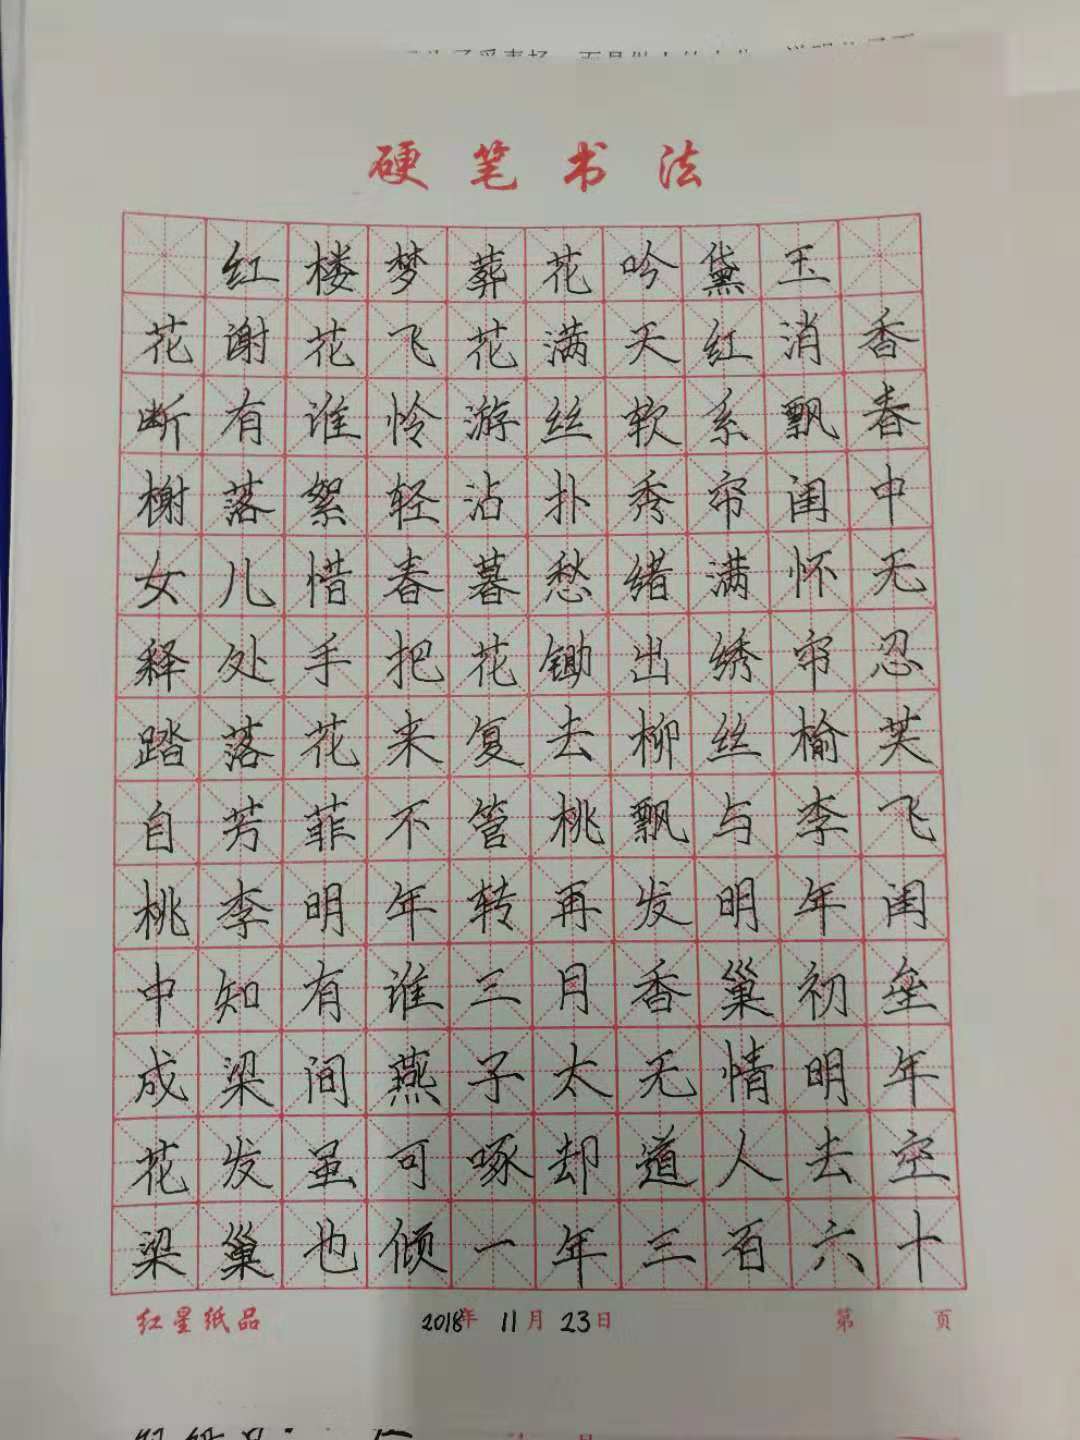 硬笔书法
红楼梦葬花吟黛玉
花谢花飞花满天红消香
断有谁怜游丝软系飘春
榭落絮轻沾扑秀帘闺中
女儿惜春暮愁绪满怀无
释处手把花锄出绣帘忍
踏落花来复去柳丝榆芙
自芳菲不管桃飘与李飞
桃李明年转再发明年闺
中知有谁三月香巢初垒
成梁间燕子太无情明年
花发虽可啄却道人去空
梁巢也倾一年三百六十
红星纸品 2018年 11月 23日 第 页